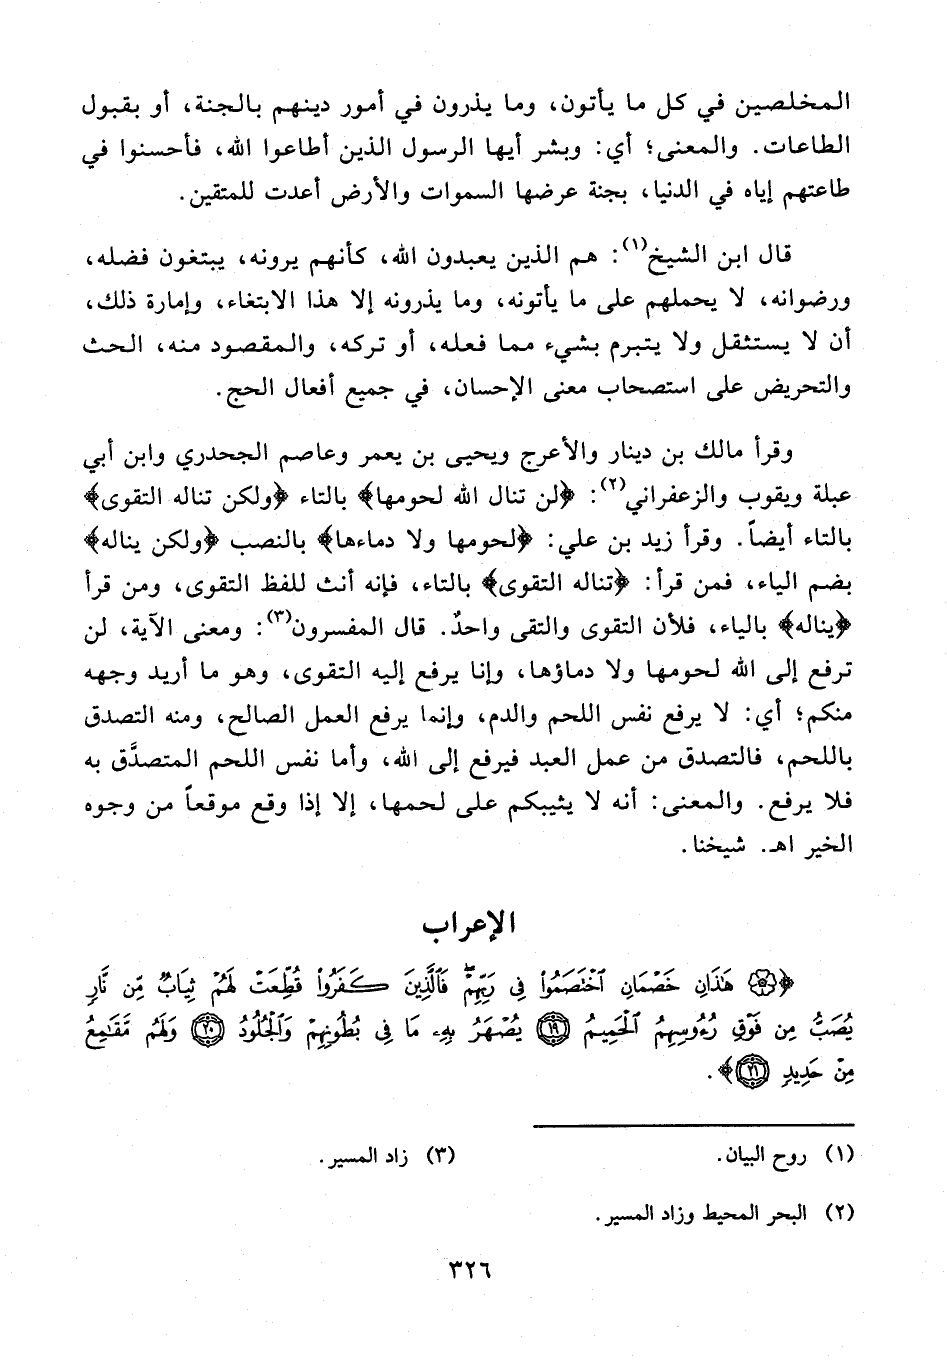 المخلصين في كل ما يأتون، وما يذرون في أمور دينهم بالجنة، أو بقبول
الطاعات. والمعنى؛ أي: وبشر أيها الرسول الذين أطاعوا الله، فأحسنوا في
طاعتهم إياه في الدنيا، بجنة عرضها السموات والأرض أعدت للمتقين.
قال ابن الشيخ(١): هم الذين يعبدون الله، كأنهم يرونه، يبتغون فضله،
ورضوانه، لا يحملهم على ما يأتونه، وما يذرونه إلا هذا الابتغاء، وإمارة ذلك،
أن لا يستثقل ولا يتبرم بشيء مما فعله، أو تركه، والمقصود منه، الحث
والتحريض على استصحاب معنى الإحسان، في جميع أفعال الحج.
وقرأ مالك بن دينار والأعرج ويحيى بن يعمر وعاصم الجحدري وابن أبي
عبلة ويقوب والزعفراني(٢): ﴿لن تنال الله لحومها﴾ بالتاء ﴿ولكن تناله التقوى﴾
بالتاء أيضاً. وقرأ زيد بن علي: ﴿لحومها ولا دماءها﴾ بالنصب ﴿ولكن يناله﴾
بضم الياء، فمن قرأ: ﴿تناله التقوى﴾ بالتاء، فإنه أنث للفظ التقوى، ومن قرأ
﴿يناله﴾ بالياء، فلأن التقوى والتقى واحدٌ. قال المفسرون(٣): ومعنى الآية، لن
ترفع إلى الله لحومها ولا دماؤها، وإنا يرفع إليه التقوى، وهو ما أريد وجهه
منكم؛ أي: لا يرفع نفس اللحم والدم، وإنما يرفع العمل الصالح، ومنه التصدق
باللحم، فالتصدق من عمل العبد فيرفع إلى الله، وأما نفس اللحم المتصدَّق به
فلا يرفع. والمعنى: أنه لا يثيبكم على لحمها، إلا إذا وقع موقعاً من وجوه
الخير اهـ. شيخنا.
الإعراب
﴿۞ هَٰذَانِ خَصْمَانِ ٱخْتَصَمُوا۟ فِى رَبِّهِمْ ۖ فَٱلَّذِينَ كَفَرُوا۟ قُطِّعَتْ لَهُمْ ثِيَابٌ مِّن نَّارٍ
يُصَبُّ مِن فَوْقِ رُءُوسِهِمُ ٱلْحَمِيمُ ۝١٩ يُصْهَرُ بِهِۦ مَا فِى بُطُونِهِمْ وَٱلْجُلُودُ ۝٢٠ وَلَهُم مَّقَٰمِعُ
مِنْ حَدِيدٍ ۝٢١﴾.
(١) روح البيان.
(٢) البحر المحيط وزاد المسير.
(٣) زاد المسير.
٣٢٦